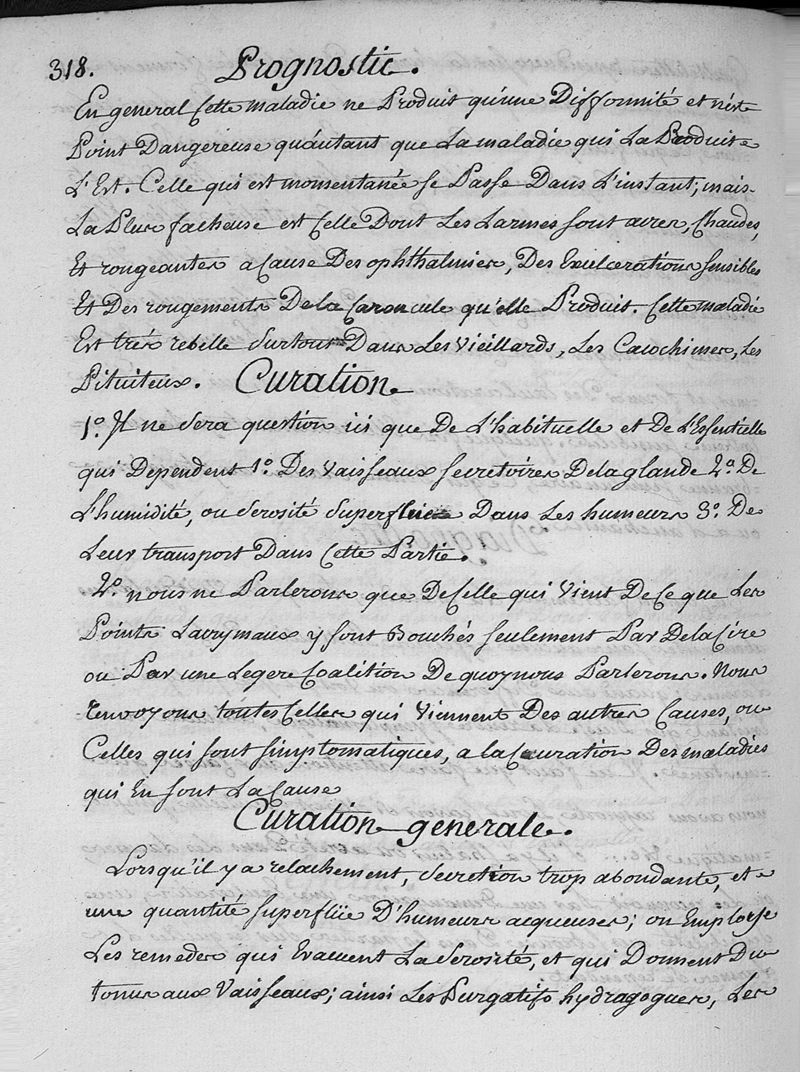 318. Prognostic.
En general Cette maladie ne Produit qu'une Difformité et n'est
Point Dangereuse qu'autant que La maladie qui La Produit
L'Est. Celle qui est momentanée se Passe Dans L'instant; mais
La Plus facheuse est Celle Dont Les Larmes sont acres, Chaudes,
Et rongeantes a Cause Des ophthalmies, Des Exulcerations sensibles
Et Des rougements De la Caroncule qu'elle Produit. Cette maladie
Est très rebelle surtout Dans Les Vieillards, Les Cacochimes, Les
Pituiteux. Curation
1º. Il ne sera question ici que De L'habituelle et De L'Essentielle
qui Dependent 1º. Des Vaisseaux secretoires De la glande 2º. De
L'humidité, ou serosité superflüe Dans Les humeurs 3º. De
Leur transport Dans Cette Partie.
2º. nous ne Parlerons que De Celle qui Vient De Ce que Les
Points Lacrymaux y sont Bouchés seulement Par De la Cire
ou Par une Legere Coalition De quoy nous Parlerons. Nous
renvoyons toutes Celles qui Viennent Des autres Causes, ou
Celles qui sont simptomatiques, a la Curation Des maladies
qui En sont La Cause
Curation generale.
Lorsqu'il y a relachement, secretion trop abondante, et
une quantité superflüe D'humeurs acqueuses; on Employe
Les remedes qui Evacuent La serosité, et qui Donnent Du
tonus aux Vaisseaux; ainsi Les Purgatifs hydragogues, Les